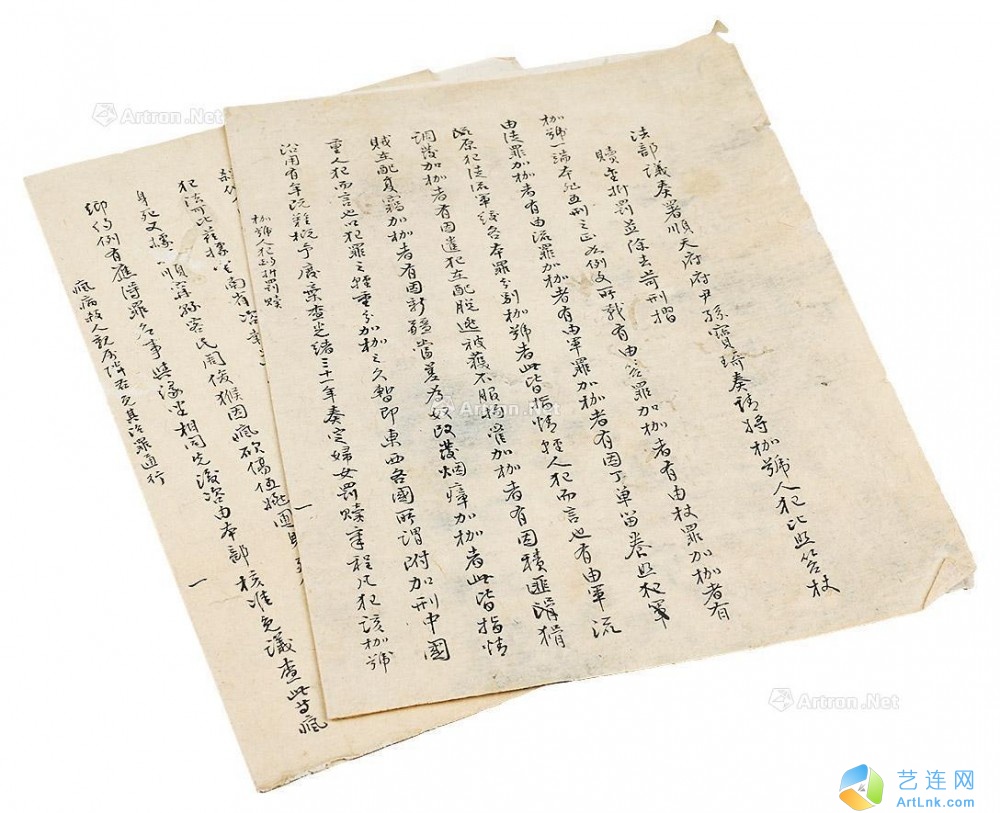 法部議奏署順天府府尹孫寶琦奏請將枷號人犯比照笞杖
贖金折罰並除去苛刑摺
枷號一端本非五刑之正考例文所載有由笞罪加枷者有由杖罪加枷者有
由徒罪加枷者有由流罪加枷者有由軍罪加枷者有因丁單留養照犯軍
流原犯徒流軍綫各本罪分別枷號者此皆指情輕人犯而言也有由軍流
調發加枷者有因遣犯在配脫逃被獲不服拘管加枷者有因積匪猾
賊在配復竊加枷者有因新疆當差為奴改發烟瘴加枷者此皆指情
重人犯而言也以犯罪之輕重分加枷之久暫即東西各國所謂附加刑中國
沿用有年既難概予廢棄查光緒三十一年奏定婦女罰贖章程凡犯該枷號
枷號人犯均折罰贖
一
犯法可比茲據
身死又據順
客民周俊猴因瘋砍傷伍
鄉約例有應得罪名事與緣坐相同先後咨由本部核准免議查此等瘋
瘋病殺人親屬隣右免其治罪通行
一
Artron.Net
Artron.Net
Artron.Net
Artron.Net
艺连网
ArtLnk.com